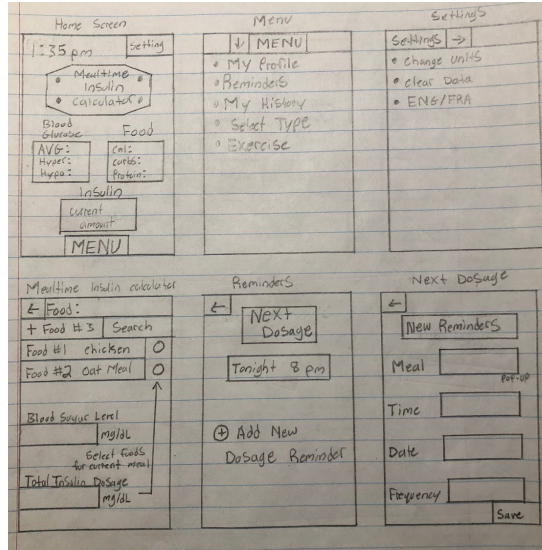 Home Screen
1:35 pm
Setting
Mealtime
Insulin
Calculator
Blood
Glucose
Food
AVG:
Hyper:
Hypo:
Cal:
carbs:
Protein:
Insulin
current
amount
MENU
Menu
↓ MENU
• My Profile
• Reminders
• My History
• Select Type
• Exercise
Settings
Settings →
• Change units
• clear Data
• ENG/FRA
Mealtime Insulin calculator
← Food:
+ Food #3 Search
Food #1 chicken
Food #2 Oat Meal
Blood Sugar Level
mg/dL
Select foods
for current meal
Total Insulin Dosage
mg/dL
Reminders
←
Next
Dosage
Tonight 8 pm
⊕ Add New
Dosage Reminder
Next Dosage
←
New Reminders
Meal
POP-UP
Time
Date
Frequency
Save